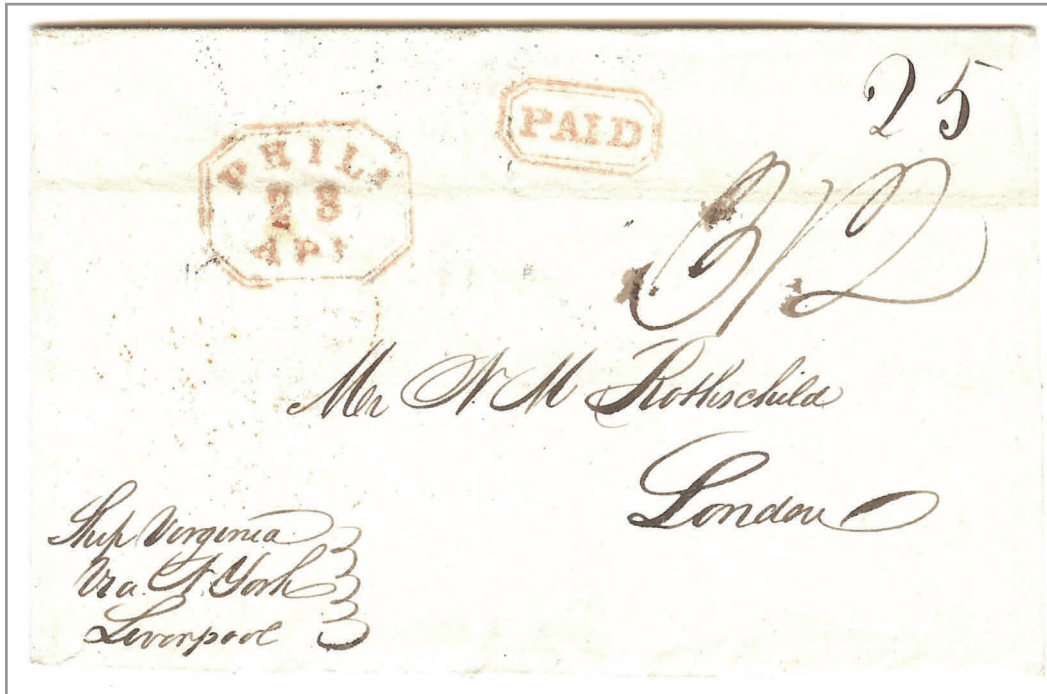 25
PAID
PHILA
28
APr
3/2
Mr N M Rothschild
London
Ship Virginia
Via N. York
Liverpool